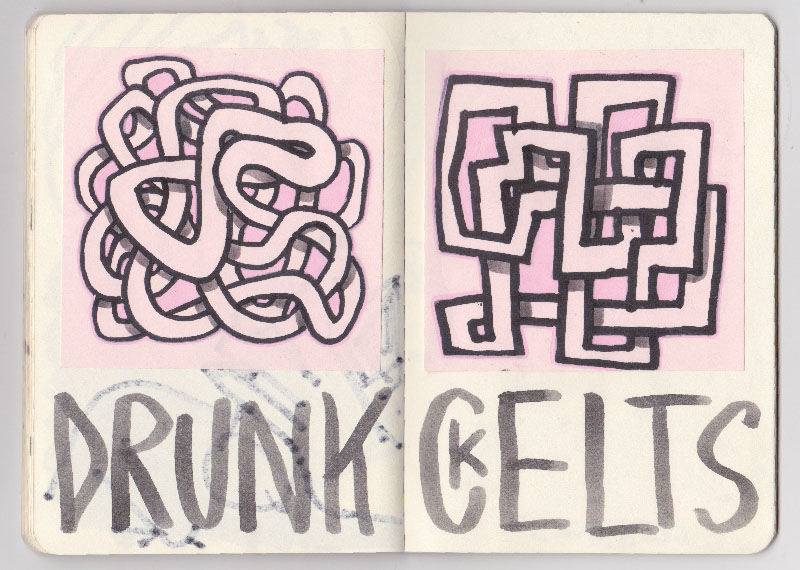 DRUNK CkELTS